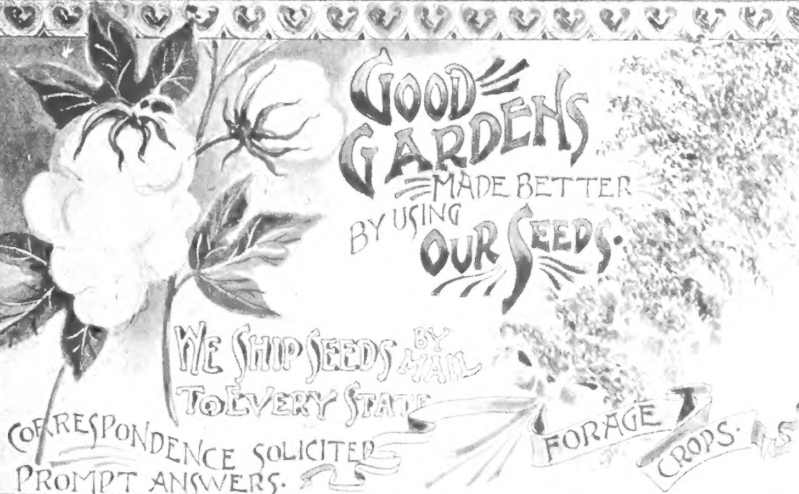 GOOD
GARDENS
MADE BETTER
BY USING
OUR SEEDS.
WE SHIP SEEDS BY MAIL
TO EVERY STATE
CORRESPONDENCE SOLICITED
PROMPT ANSWERS.
FORAGE
CROPS.